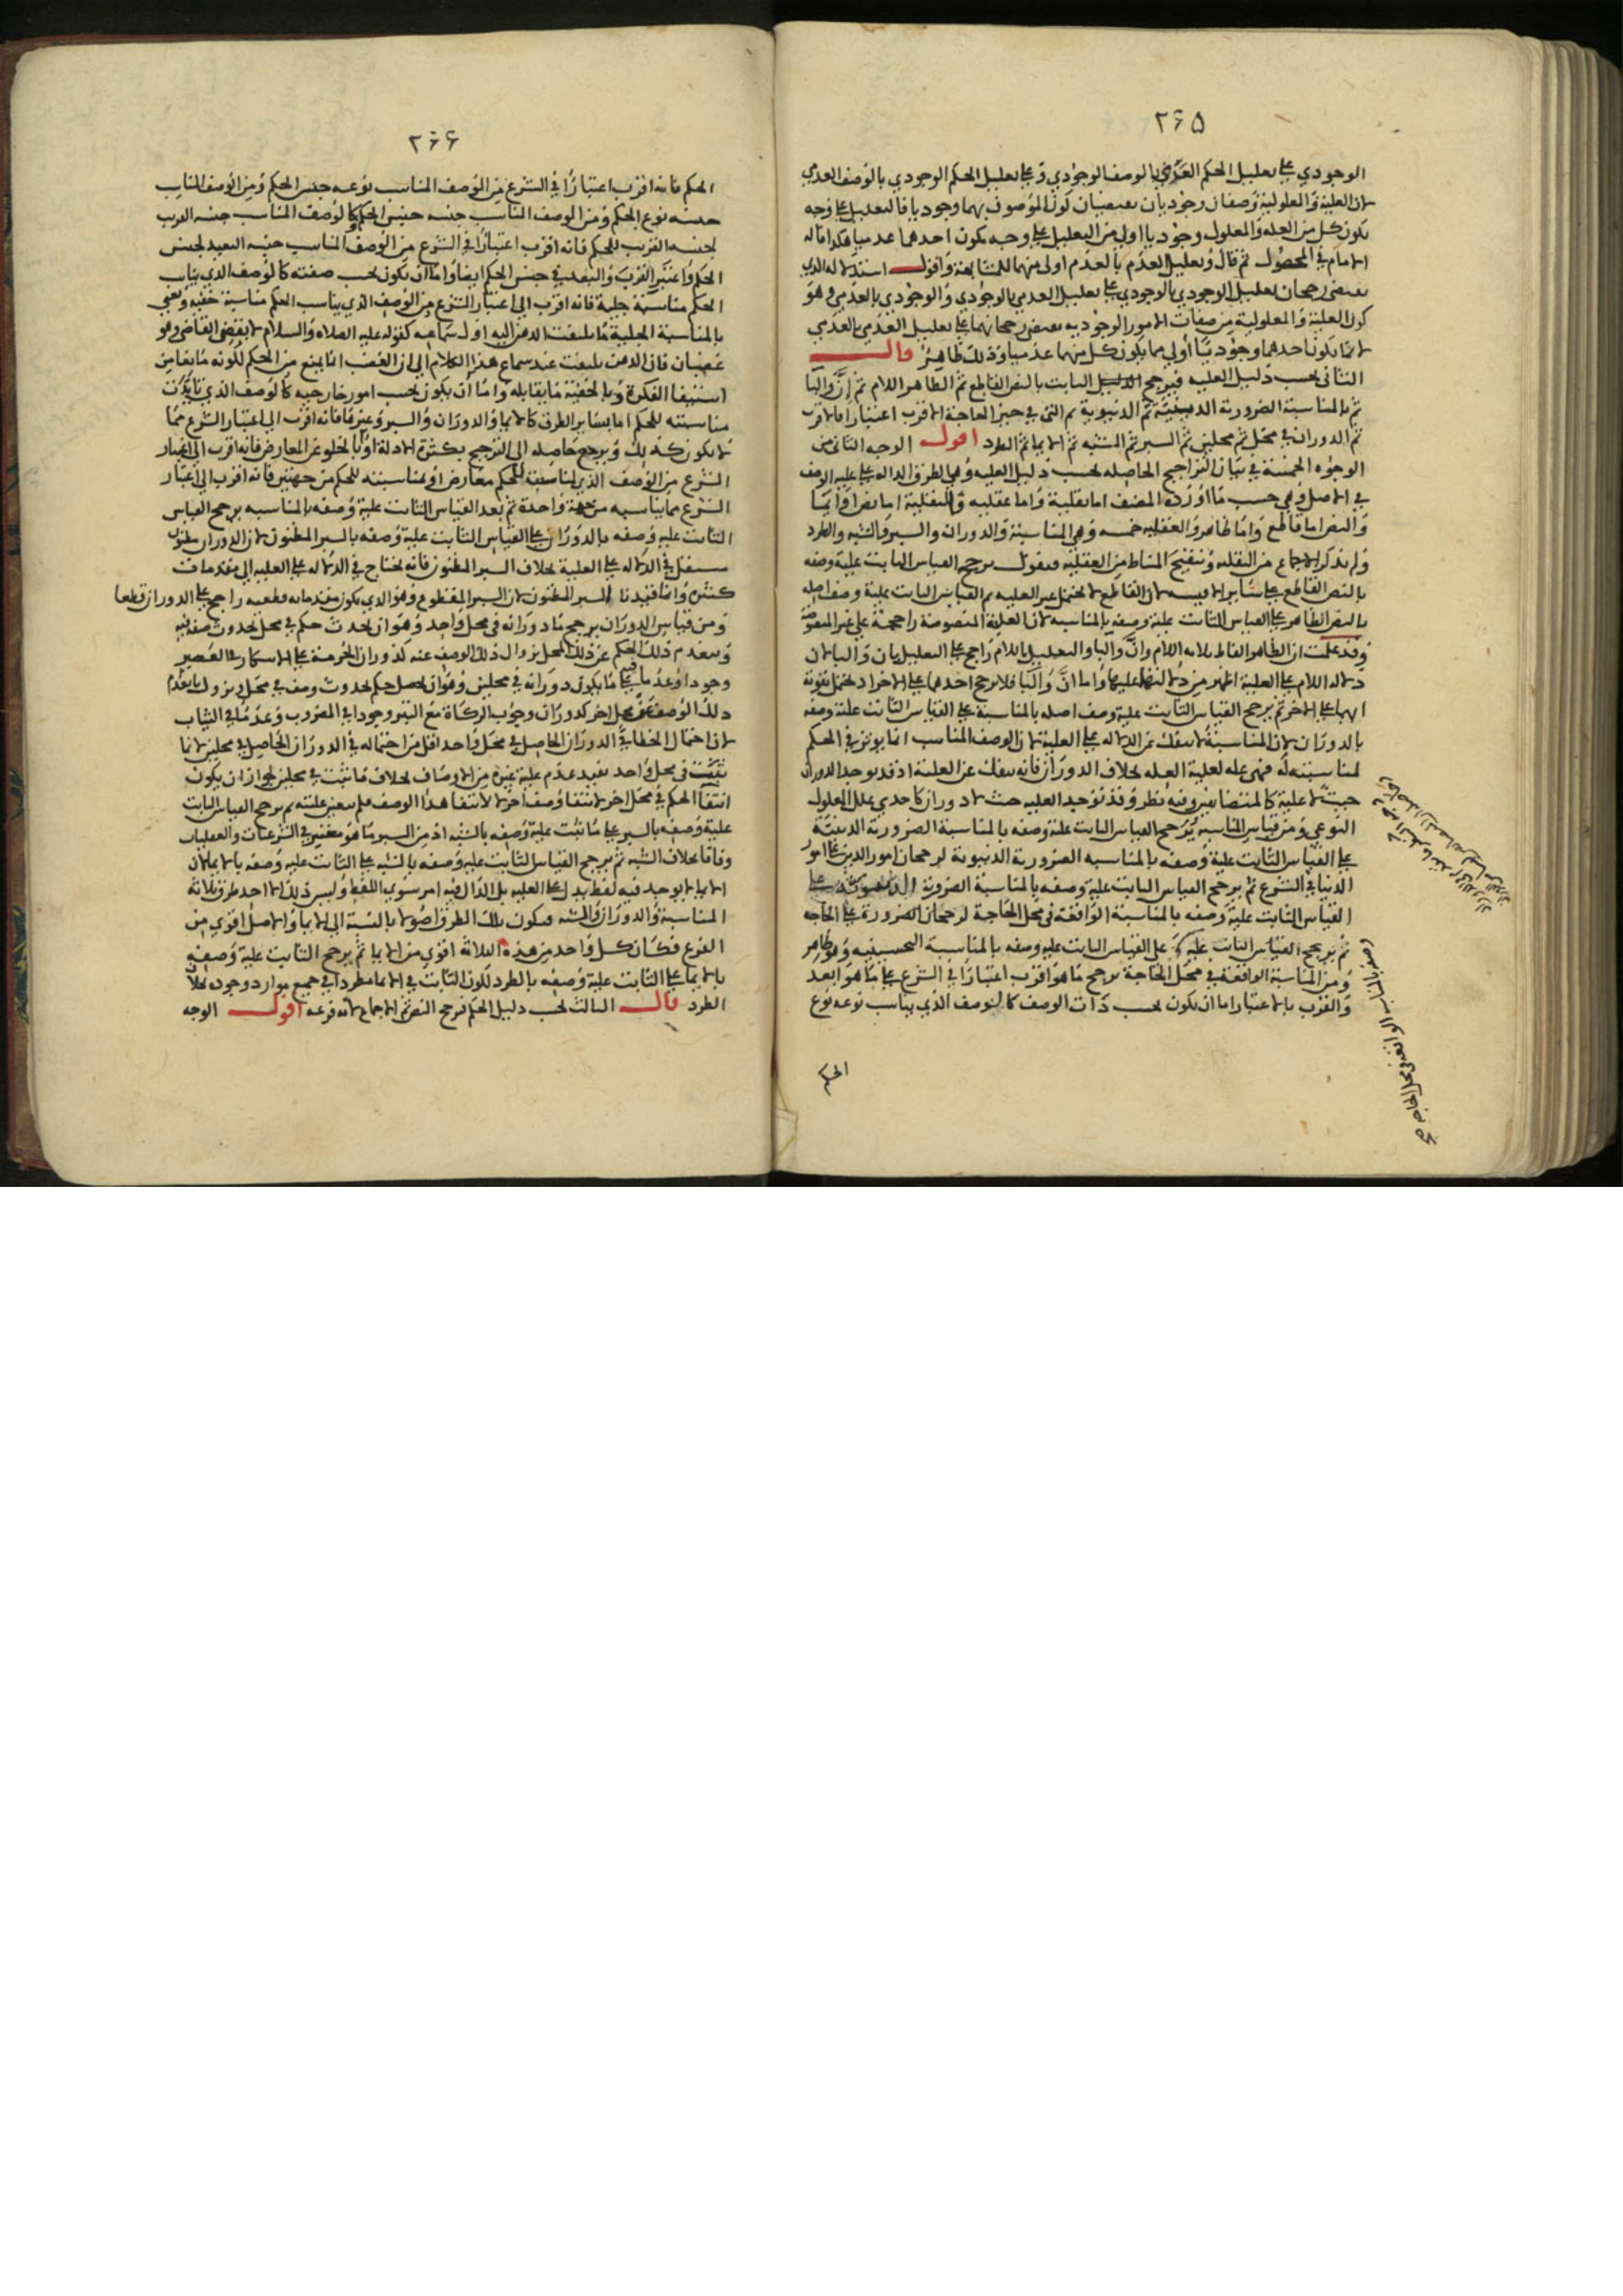 ٢٦٥
الوجودي على تعليل الحكم العدمي بالوصف الوجودي وعلى تعليل الحكم الوجودي بالوصف العدمي
لان العلية والمعلولية وصفان وجوديان يقتضيان كون الموصوف بهما وجوديا فالتعليل على وجه
يكون كل من العلة والمعلول وجوديا اولى من التعليل على وجه يكون احدهما عدميا هكذا قاله
الامام في المحصول ثم قال وتعليل العدم بالعدم اولى منهما للمشابهة واقول استدلاله الذي
يقتضي رجحان تعليل الوجودي بالوجودي على تعليل العدمي بالوجودي والوجودي بالعدمي وهو
كون العلية والمعلولية من صفات الامور الوجودية يقتضي رجحانهما على تعليل العدمي بالعدمي
لان ما يكون احدهما وجوديا اولى مما يكون كل منهما عدميا وذلك ظاهر قال
الثاني بحسب دليل العلية فيرجح الثابت بالنص القاطع ثم الظاهر اللام ثم ان والبا
ثم بالمناسبة الضرورية الدينية ثم الدنيوية ثم التي في حيز الحاجة الاقرب اعتبارا فالاقرب
ثم الدوران في محل ثم محلين ثم السبر ثم الشبه ثم الايما ثم الطرد اقول الوجه الثاني من
الوجوه الخمسة في بيان التراجيح الحاصلة بحسب دليل العلية وهي الطرق الدالة على علية الوصف
في الاصل وهي حسب ما اورده المصنف اما نقلية واما عقلية والنقلية اما نص او ايما
والنص اما قاطع واما ظاهر والعقلية خمسة وهي المناسبة والدوران والسبر والشبه والطرد
ولم يذكر الاجماع من النقلية وتنقيح المناط من العقلية فيقول يرجح القياس الثابت علية وصفه
بالنص القاطع على سائر الاقيسة لان القاطع لا يحتمل غير العلية ثم القياس الثابت علية وصف اصله
بالنص الظاهر على القياس الثابت علية وصفه بالمناسبة لان العلية المنصوصة راجحة على غير المنصوصة
وقد علمت ان الظاهر الفاظ ثلاثة اللام وان والبا والتعليل باللام راجح على التعليل بان والبا لان
دلالة اللام على العلية اظهر من دلالتهما عليها واما ان والبا فلا يرجح احدهما على الاخر
ايهما على الاخر ثم يرجح القياس الثابت علية وصف اصله بالمناسبة على القياس الثابت علية وصفه
بالدوران لان المناسبة لا تنفك عن الدلالة على العلية لان الوصف المناسب انما يوثر في الحكم
لمناسبته له فهي علة لعلية العلة بخلاف الدوران فانه ينفك عن العلية اذ قد يوجد الدوران
حيث لا علية كالمتضايفين وفيه نظر وقد توجد العلية حيث لا دوران كاحدى علل المعلول
النوعي ومن قياس المناسبة يرجح القياس الثابت علية وصفه بالمناسبة الضرورية الدينية
على القياس الثابت علية وصفه بالمناسبة الضرورية الدنيوية لرجحان امور الدين على امور
الدنيا في الشرع ثم يرجح القياس الثابت علية وصفه بالمناسبة الضرورية الدنيوية على
القياس الثابت علية وصفه بالمناسبة الواقعة في محل الحاجة لرجحان الضرورة على الحاجة
ثم يرجح القياس الثابت علية على القياس الثابت علية وصفه بالمناسبة التحسينية وهو ظاهر
ومن المناسبة الواقعة في محل الحاجة يرجح ما هو اقرب اعتبارا في الشرع على ما هو ابعد
والقرب بالاعتبار اما ان يكون بحسب ذات الوصف كالوصف الذي يناسب نوعه نوع
وصفه بالمناسبة الواقعة في محل الحاجة صح
الحكم
٢٦٦
الحكم فانه اقرب اعتبارا في الشرع من الوصف المناسب نوعه جنس الحكم ومن الوصف المناسب
جنسه نوع الحكم ومن الوصف المناسب جنسه جنس الحكم وكالوصف المناسب جنسه القريب
لجنسه القريب للحكم فانه اقرب اعتبارا في الشرع من الوصف المناسب جنسه البعيد لجنس
الحكم واعتبر القرب والبعد في جنس الحكم ايضا واما ان يكون بحسب صفته كالوصف الذي يناسب
الحكم مناسبة جلية فانه اقرب الى اعتبار الشرع من الوصف الذي يناسب الحكم مناسبة خفية ونعني
بالمناسبة الجلية ما يلتفت الذهن اليه اول سماعه كقوله عليه الصلاه والسلام لا يقضي القاضي وهو
غضبان فان الذهن يلتفت عند سماع هذا الكلام الى ان الغضب انما يمنع من الحكم لكونه مانعا من
استيفا الفكر وبالخفية ما يقابله واما ان يكون بحسب امور خارجية كالوصف الذي تايدت
مناسبته للحكم اما بسائر الطرق كالايما والدوران والسبر وغيرها فانه اقرب الى اعتبار الشرع مما
لا يكون كذلك ويرجع حاصله الى الترجيح بكثرة الادلة او بالخلو عن المعارض فانه اقرب الى اعتبار
الشرع من الوصف الذي لمناسبته للحكم معارض او بمناسبته للحكم من جهتين فانه اقرب الى اعتبار
الشرع مما يناسبه من جهة واحدة ثم بعد القياس الثابت علية وصفه بالمناسبة يرجح القياس
الثابت علية وصفه بالدوران على القياس الثابت علية وصفه بالسبر المظنون لان الدوران
مستقل في الدلالة على العلية بخلاف السبر المظنون فانه يحتاج في الدلالة على العلية الى مقدمات
كثيرة وانما قيدنا السبر بالمظنون لان السبر المقطوع وهو الذي يكون مقدماته قطعية راجح على الدوران قطعا
ومن قياس الدوران يرجح ما دورانه في محل واحد وهو ان يحدث حكم في محل لحدوث صفة فيه
وينعدم ذلك الحكم عن ذلك المحل بزوال ذلك الوصف عنه كدوران الحرمة على الاسكار في العصير
وجودا وعدما على ما يكون دورانه في محلين وهو ان يحصل حكم لحدوث وصف في محل ويزول بانعدام
ذلك الوصف عن محل اخر كدوران وجوب الزكاة مع النقد وجودا في المضروب وعدما في الثياب
لان احتمال الخطا في الدوران الحاصل في محل واحد اقل من احتماله في الدوران الحاصل في محلين لان ما
تثبت في محل واحد يفيد عدم علية غيره من الاوصاف بخلاف ما تثبت في محلين لجواز ان يكون
انتفا الحكم في محل اخر لانتفا وصف اخر لا لانتفا هذا الوصف فلم يتعين عليته ثم يرجح القياس الثابت
علية وصفه بالسبر على ما تثبت علية وصفه بالشبه اذ من السبر ما هو معتبر في الشرعيات والعقليات
وفاقا بخلاف الشبه ثم يرجح القياس الثابت علية وصفه بالشبه على الثابت علية وصفه بالايما لان
الايما لا يوجد فيه لفظ يدل على العلية بل الدال فيه امر سوى اللفظ وليس ذلك الا احد طرق ثلاثة
المناسبة والدوران والشبه فيكون تلك الطرق اصولا بالنسبة الى الايما والاصل اقوى من
الفرع فكان كل واحد من هذه الثلاثة اقوى من الايما ثم يرجح الثابت علية وصفه
بالايما على الثابت علية وصفه بالطرد لكون الثابت في الايما مطردا في جميع موارد وجوده بخلاف
الطرد قال الثالث بحسب دليل الحكم فيرجح النص ثم الاجماع لانه فرعه اقول الوجه